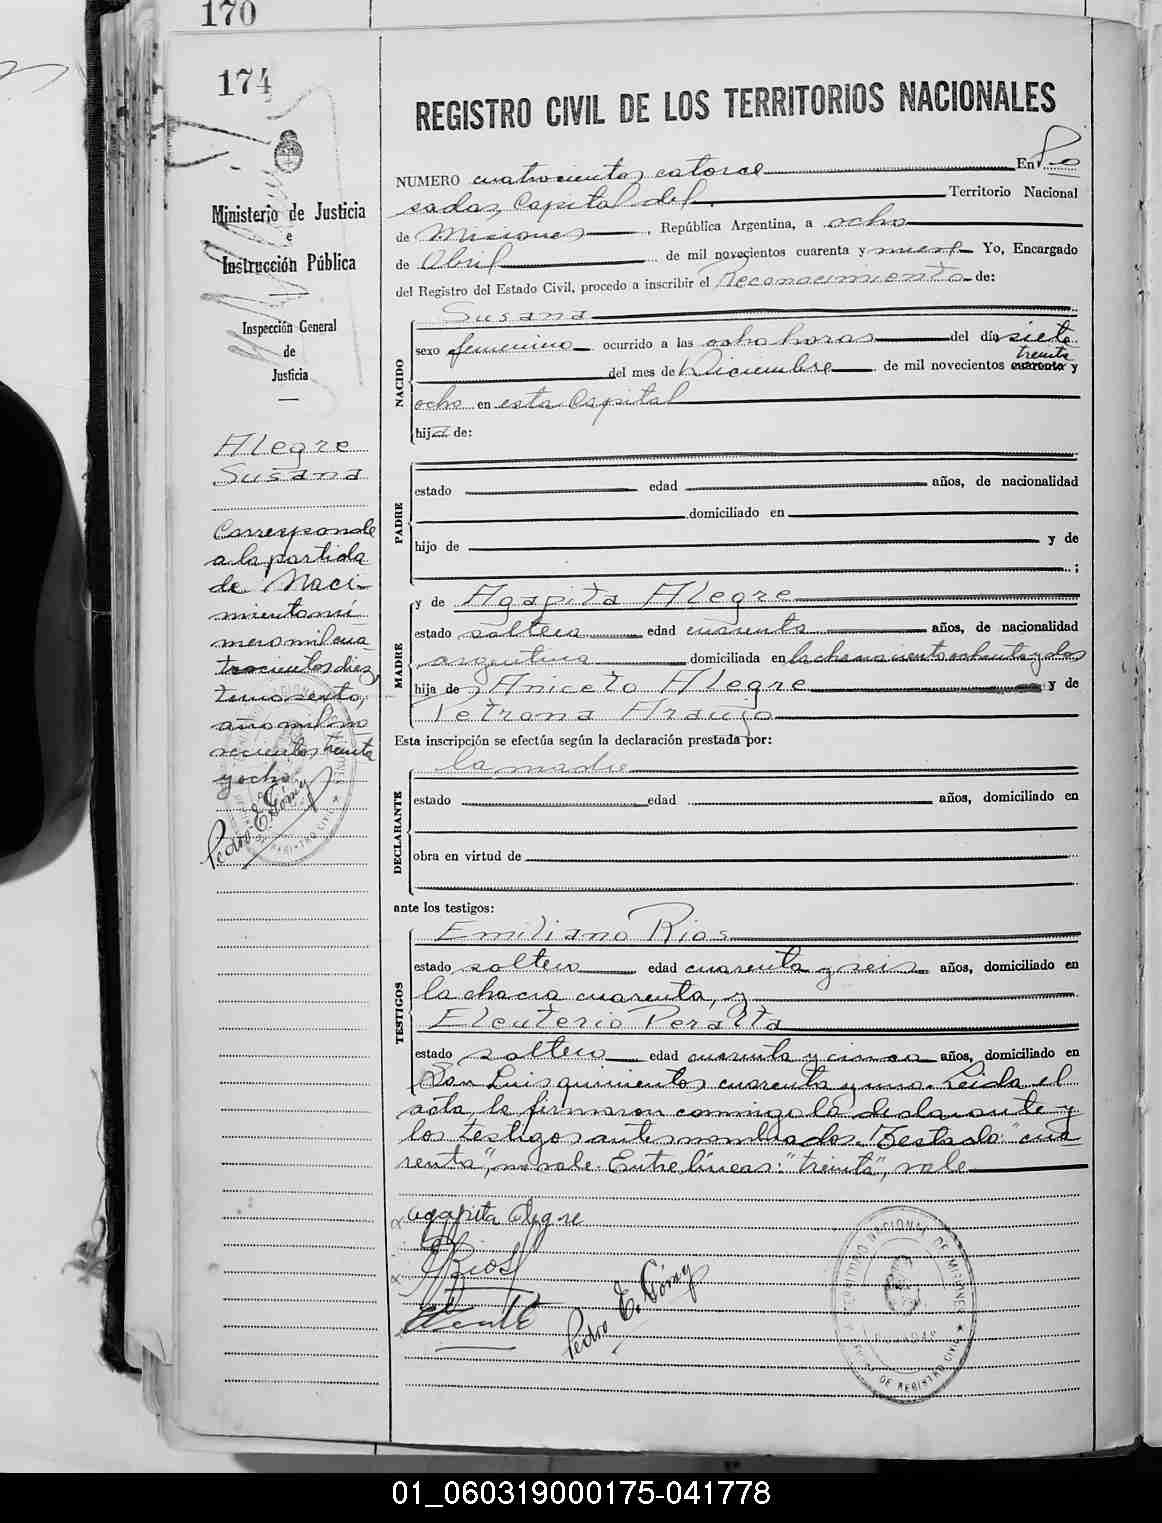 170
174
REGISTRO CIVIL DE LOS TERRITORIOS NACIONALES
Ministerio de Justicia
e
Instrucción Pública
Inspección General
de
Justicia
Alegre
Susana
Corresponde
a la partida
de Naci-
miento nú
mero mil cua
trocientos diez
tomo sexto,
año mil no
vecientos treinta
y ocho
Pedro E. Góma
NUMERO cuatrocientos catorce En Po
sadas, Capital del Territorio Nacional
de Misiones, República Argentina, a ocho
de Abril de mil novecientos cuarenta y nueve Yo, Encargado
del Registro del Estado Civil, procedo a inscribir el Reconocimiento de:
NACIDO
Susana
sexo femenino ocurrido a las ocho horas del día siete
treinta
del mes de Diciembre de mil novecientos cuarenta y
ocho en esta Capital
hija de:
PADRE
estado edad años, de nacionalidad
domiciliado en
hijo de y de
;
MADRE
y de Agapita Alegre
estado soltera edad cuarenta años, de nacionalidad
argentina domiciliada en la chacra ciento ochenta y dos
hija de Aniceto Alegre y de
Petrona Araujo
Esta inscripción se efectúa según la declaración prestada por:
DECLARANTE
la madre
estado edad años, domiciliado en
obra en virtud de
ante los testigos:
TESTIGOS
Emiliano Rios
estado soltero edad cuarenta y seis años, domiciliado en
la chacra cuarenta, y
Eleuterio Peralta
estado soltero edad cuarenta y cinco años, domiciliado en
San Luis quinientos cuarenta y uno. Leida el
acta, la firmaron conmigo la declarante y
los testigos antes nombrados. Testado: "cua
renta", no vale. Entre lineas: "treinta", vale
Agapita Alegre
E Rios
Pedro E. Góma
TERRITORIO NACIONAL DE MISIONES
POSADAS
DE REGISTRO CIVIL
01_060319000175-041778